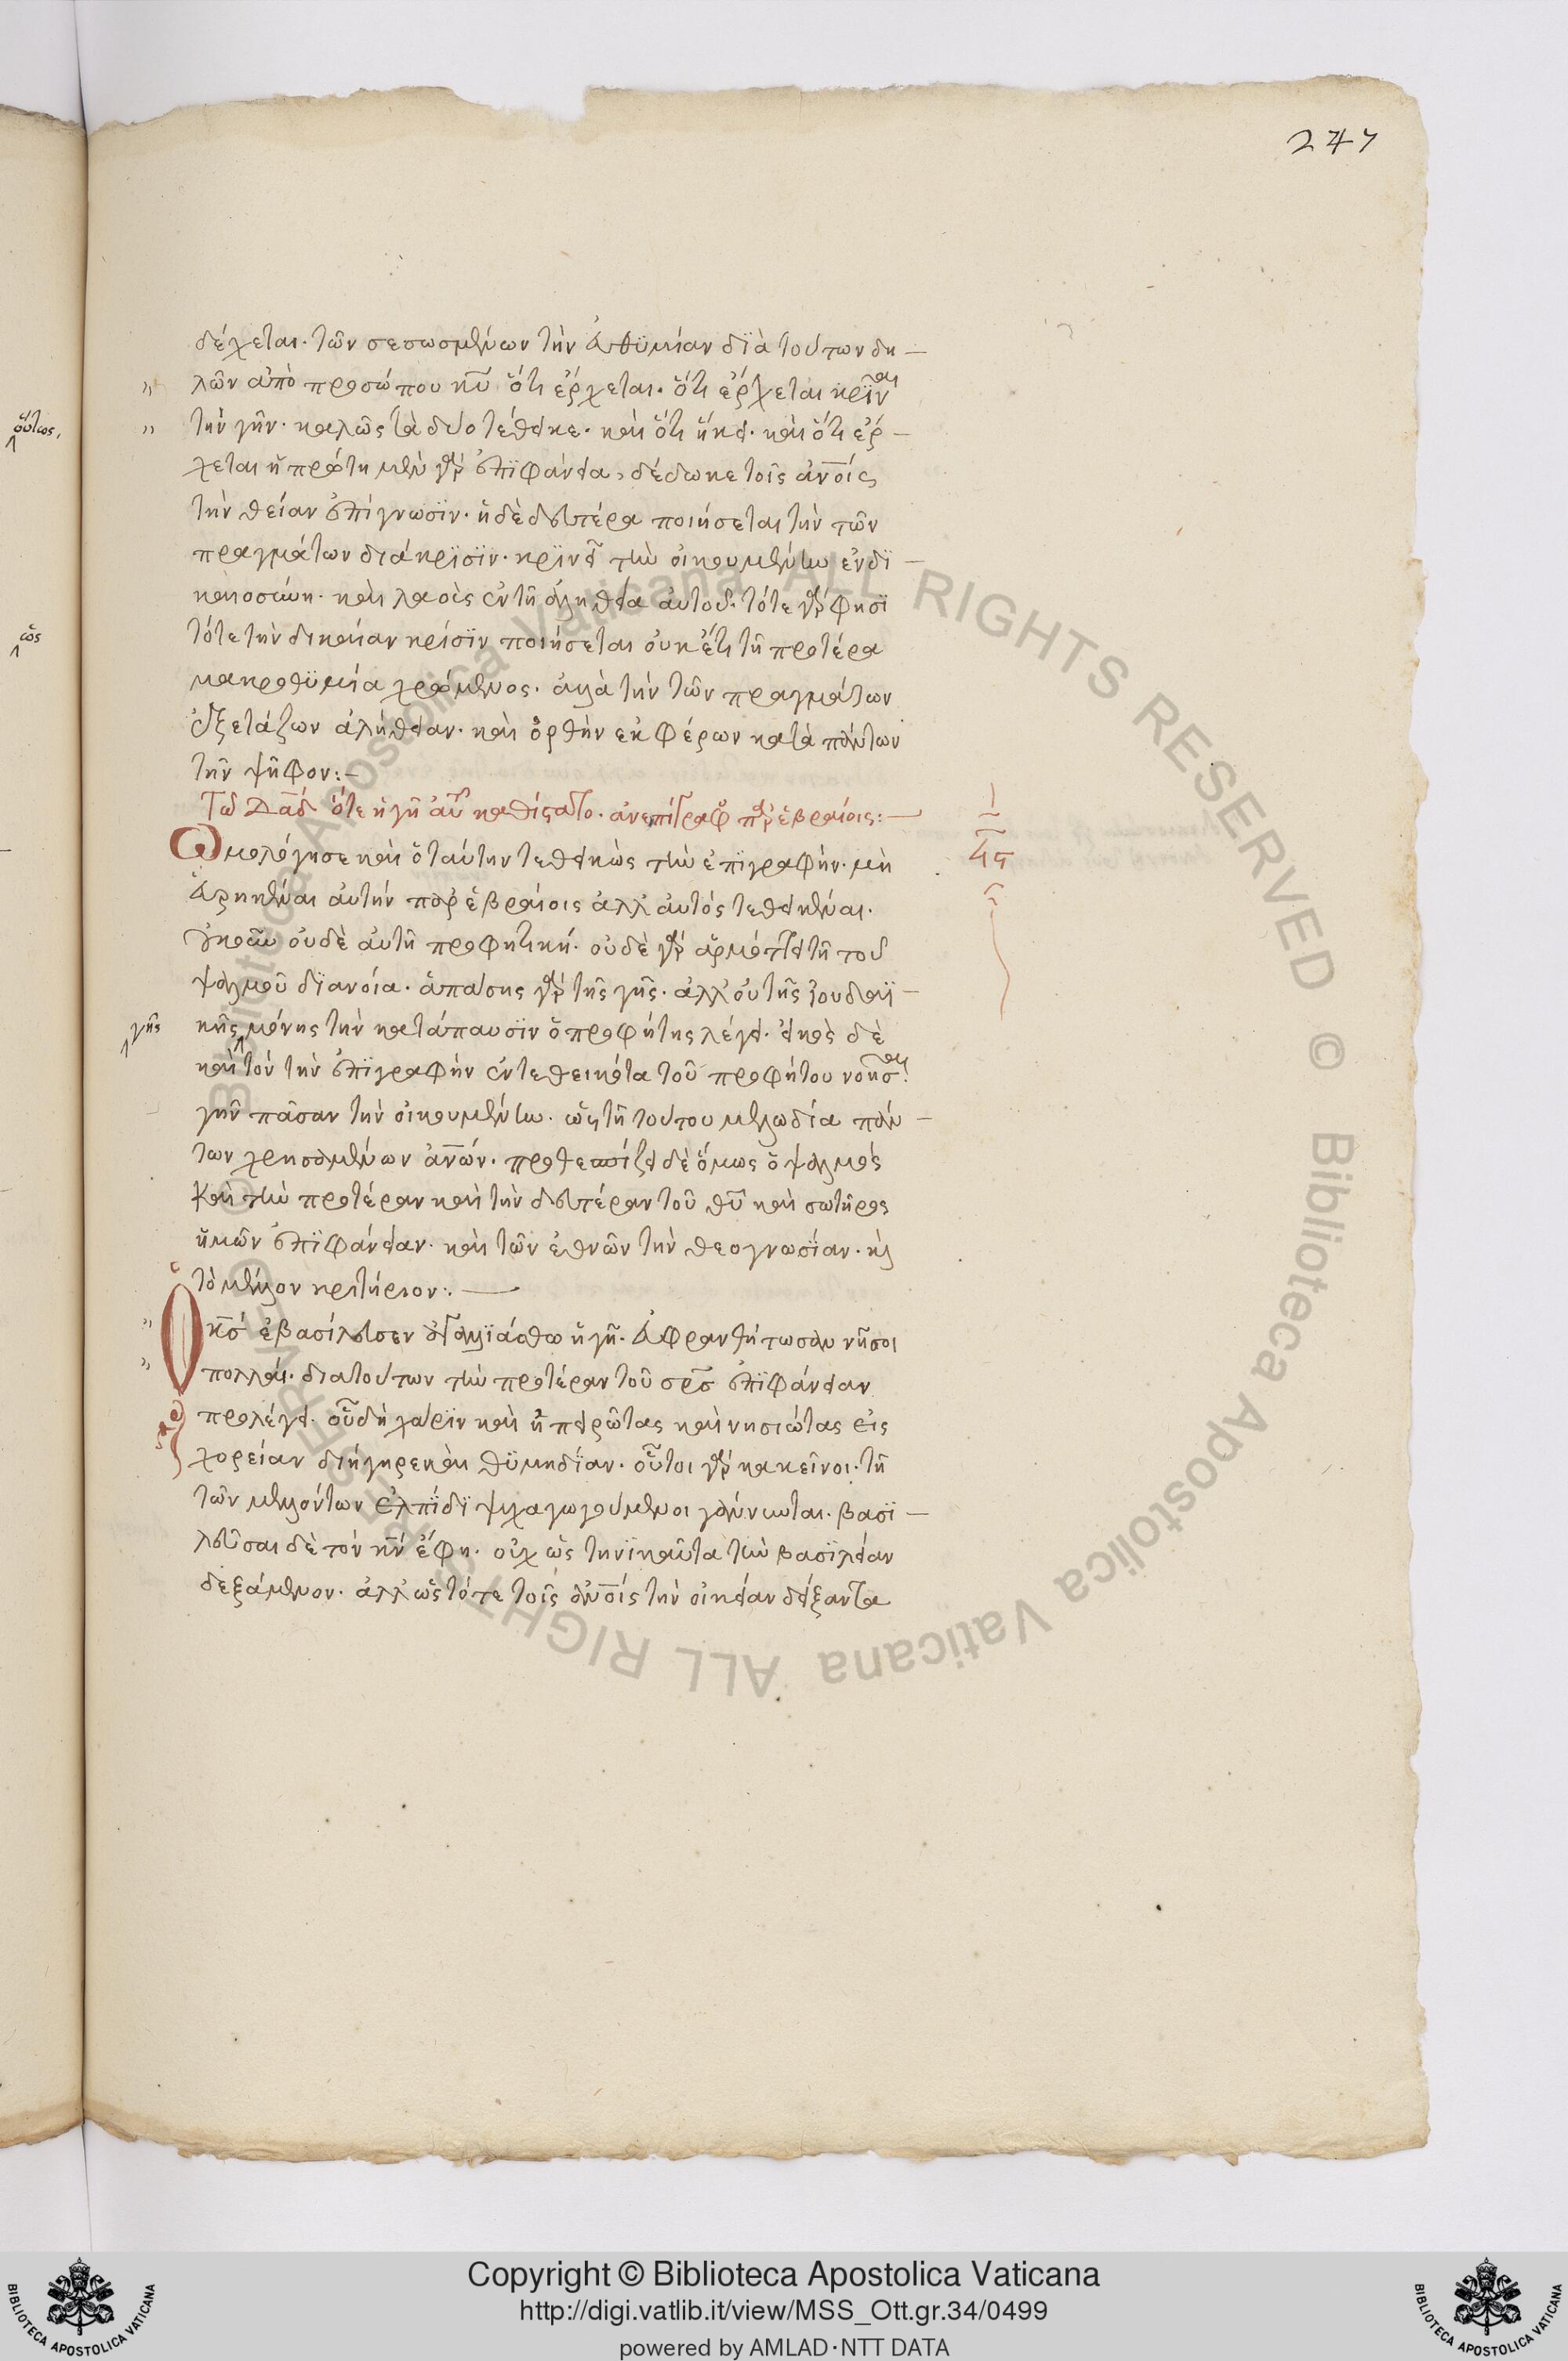 247
δέχεται· τῶν σεσωσμένων τὴν εὐθϋμίαν δϊὰ τούτων δη –
λῶν ἀπὸ προσώπου κῡ ὅτι ἔρχεται· ὅτι ἔρχεται κρῖναι
τὴν γῆν· καλῶς τὰ δύο τέθεικε· καὶ ὅτι ἥκει· καὶ ὅτι ἔρ –
χεται ἡ πρώτη μὲν γὰρ ἐπϊφάνεια, δέδωκε τοῖς ἀνοῖς
τὴν θείαν ἐπίγνωσϊν· ἡ δὲ δευτέρα ποιήσεται τὴν τῶν
πραγμάτων διάκρϊσϊν· κρϊνεῖ τὴν οἰκουμένην ἐν δϊ –
καιοσύνη· καὶ λαοὺς ἐν τῆ ἀληθεία αὐτοῦ· τότε γὰρ φησϊ
τότε τὴν δικαίαν κρίσϊν ποιήσεται οὐκ ἔτι τῆ προτέρα
μακροθϋμία χρώμενος· ἀλλὰ τὴν τῶν πραγμάτων
ἐξετάζων ἀλήθειαν· καὶ ὀρθὴν ἐκφέρων κατὰ πάντων
τὴν ψῆφον:–
Τῶ Δᾱδ ὅτε ἡ γῆ αὐτοῦ καθίσατο· ἀνεπίγραφος παρ ἑβραίοις:–
Ϟϛ
Ὡμολόγησε καὶ ὁ ταύτην τεθεικὼς τὴν ἐπϊγραφήν· μὴ
εὑρηκέναι αὐτὴν παρ ἑβραίοις ἀλλ αὐτὸς τεθεικέναι·
οὐδὲ αὐτὴ προφητική· οὐδὲ γὰρ ἁρμόττει τῆ τοῦ
ψαλμοῦ δϊανοία· ἁπάσης γὰρ τῆς γῆς· ἀλλ οὐ τῆς ἰουδαϊ –
γῆς
κῆς μόνης τὴν κατάπαυσϊν ὁ προφήτης λέγει· εἰκὸς δὲ
καὶ τὸν τὴν ἐπϊγραφὴν ἐντεθεικότα τοῦ προφήτου νοῆσαι
γῆν πᾶσαν τὴν οἰκουμένην· ὡς τῆ τούτου μελωδία πάν –
των χρησαμένων ἀνῶν· προθεσπίζει δὲ ὅμως ὁ ψαλμὸς
καὶ τὴν προτέραν καὶ τὴν δευτέραν τοῦ θῡ καὶ σωτῆρος
ἡμῶν ἐπϊφάνειαν· καὶ τῶν ἐθνῶν τὴν θεογνωσίαν· κὶ
τὸ μέλλον κριτήριον:. —
Ὁ κς ἐβασίλευσεν ἀγαλλϊάσθω ἡ γῆ· εὐφρανθήτωσαν νῆσοι
πολλαί· διὰ τούτων τὴν προτέραν τοῦ σρς ἐπϊφάνειαν
προλέγει· οὗ δὴ χάρϊν καὶ ἠπειρώτας καὶ νησιώτας εἰς
χορείαν διήγηρε καὶ θϋμηδίαν· οὗτοι γὰρ κακεῖνοι· τῆ
τῶν μελλόντων ἐλπίδϊ ψυχαγωγούμενοι γάννυνται· βασϊ –
λεῦσαι δὲ τὸν κν ἔφη· οὐχ ὡς τηνϊκαῦτα τὴν βασϊλείαν
δεξάμενον· ἀλλ ὡς τότε τοῖς ἀνοῖς τὴν οἰκείαν δείξαντα
οὕτως,
ὡς
RIGHTS RESERVED © Biblioteca Apostolica Vaticana ALL RIGHTS RESERVED © Biblioteca Apostolica Vaticana ALL
BIBLIOTECA APOSTOLICA VATICANA
Copyright © Biblioteca Apostolica Vaticana
http://digi.vatlib.it/view/MSS_Ott.gr.34/0499
powered by AMLAD·NTT DATA
BIBLIOTECA APOSTOLICA VATICANA